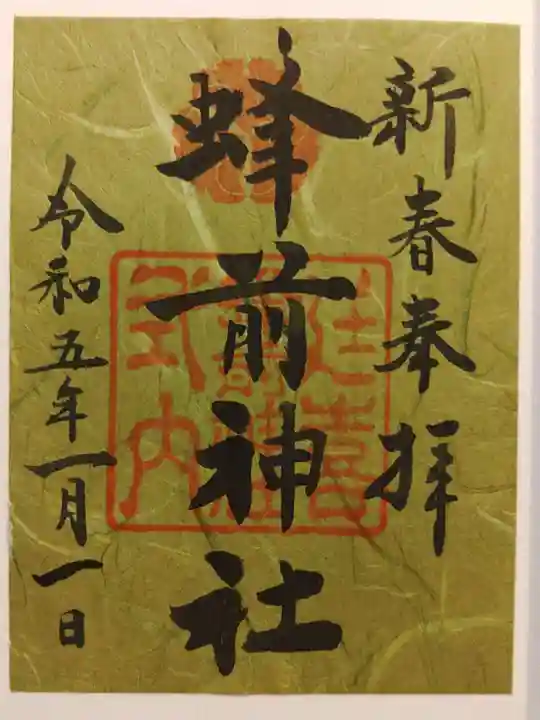 新春奉拝
蜂前神社
延喜
式内
令和五年一月一日